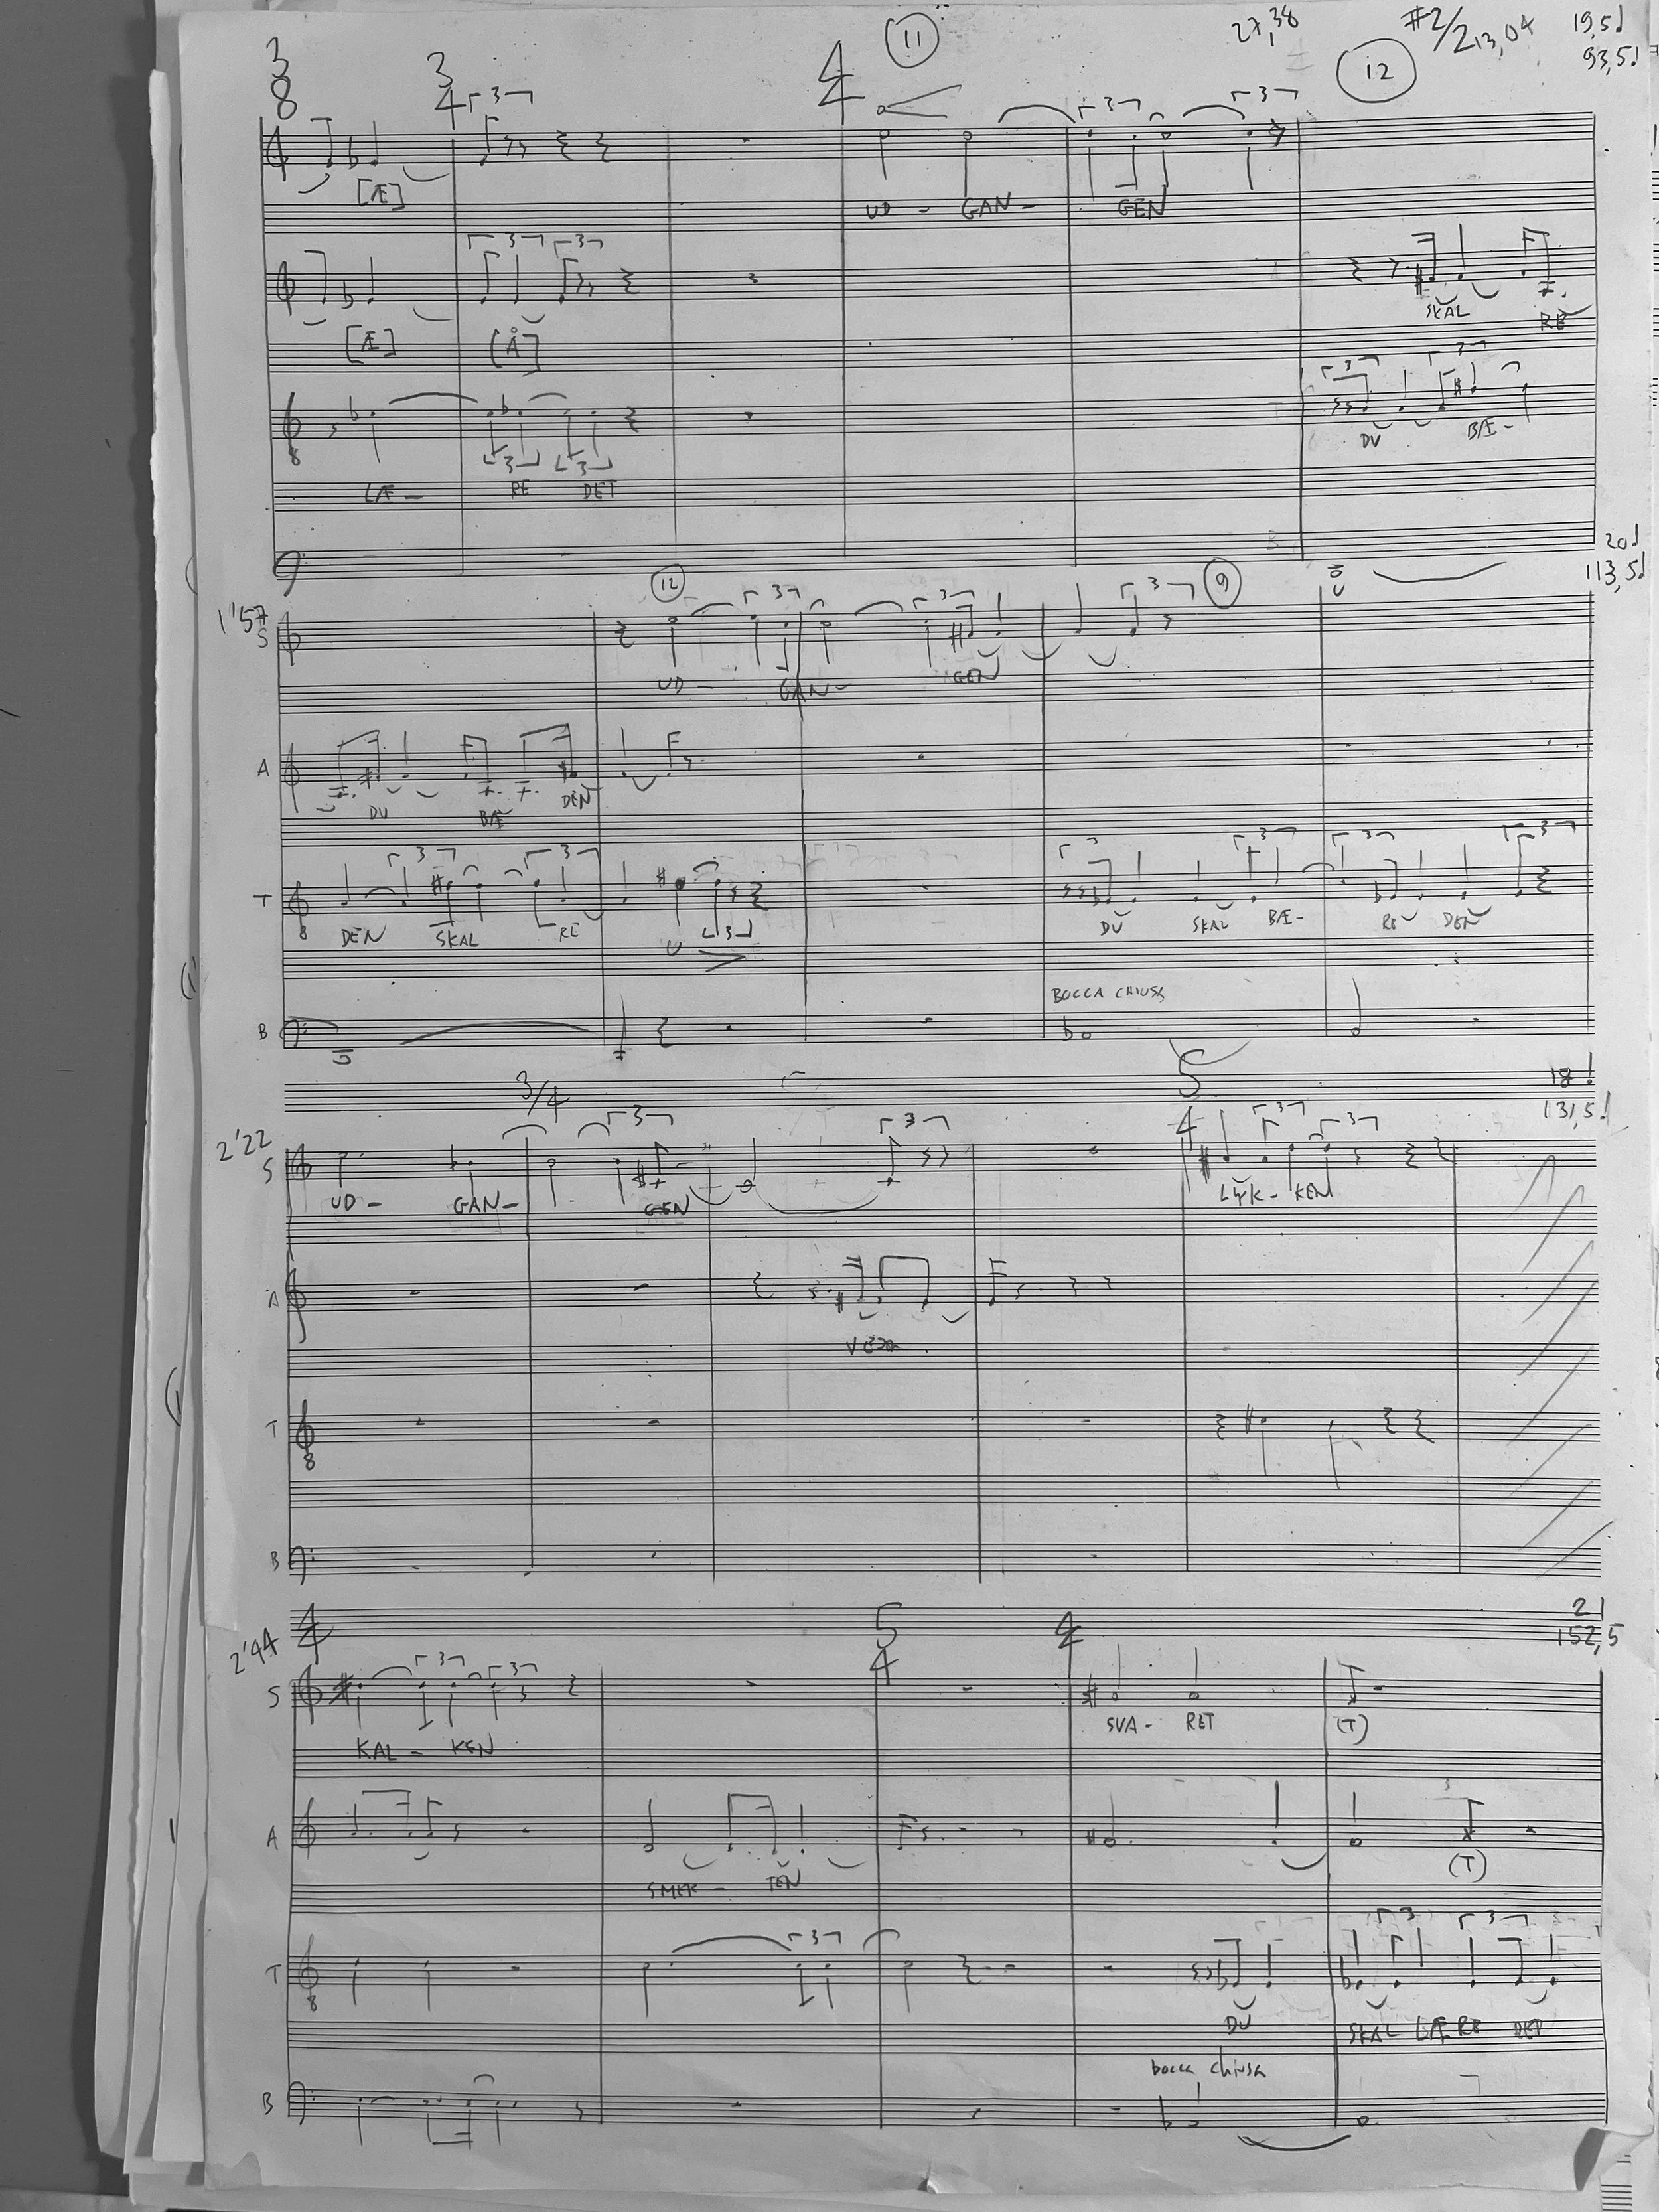 3/8 3/4 4/4 11 27,38 12 #2/2 13,04 19,5
93,5
3 3 3 3
[Æ]
UD - GAN - GEN
3 3
SKAL RE
[Æ] [Å]
3 3
DU BÆ -
8
3 3
LÆ - RE DET
B
20
113,5
1'57 12 9
3 3 3
S
UD - GAN - GEN
A
DU BÆ DEN
3 3 3 3 3
T
8
DEN SKAL RE U 3 DU SKAL BÆ - RE DEN
BOCCA CHIUSA
B
3/4 5/4 18
131,5
2'22
3 3 3 3
S
UD - GAN - GEN LYK - KEN
A
T
8
B
4/4 5/4 4 21
152,5
2'44
3 3
S
KAL - KEN SVA - RET (T)
A
SMER - TEN (T)
3 3 3
T
8
DU SKAL LÆ RE DET
bocca chiusa
B